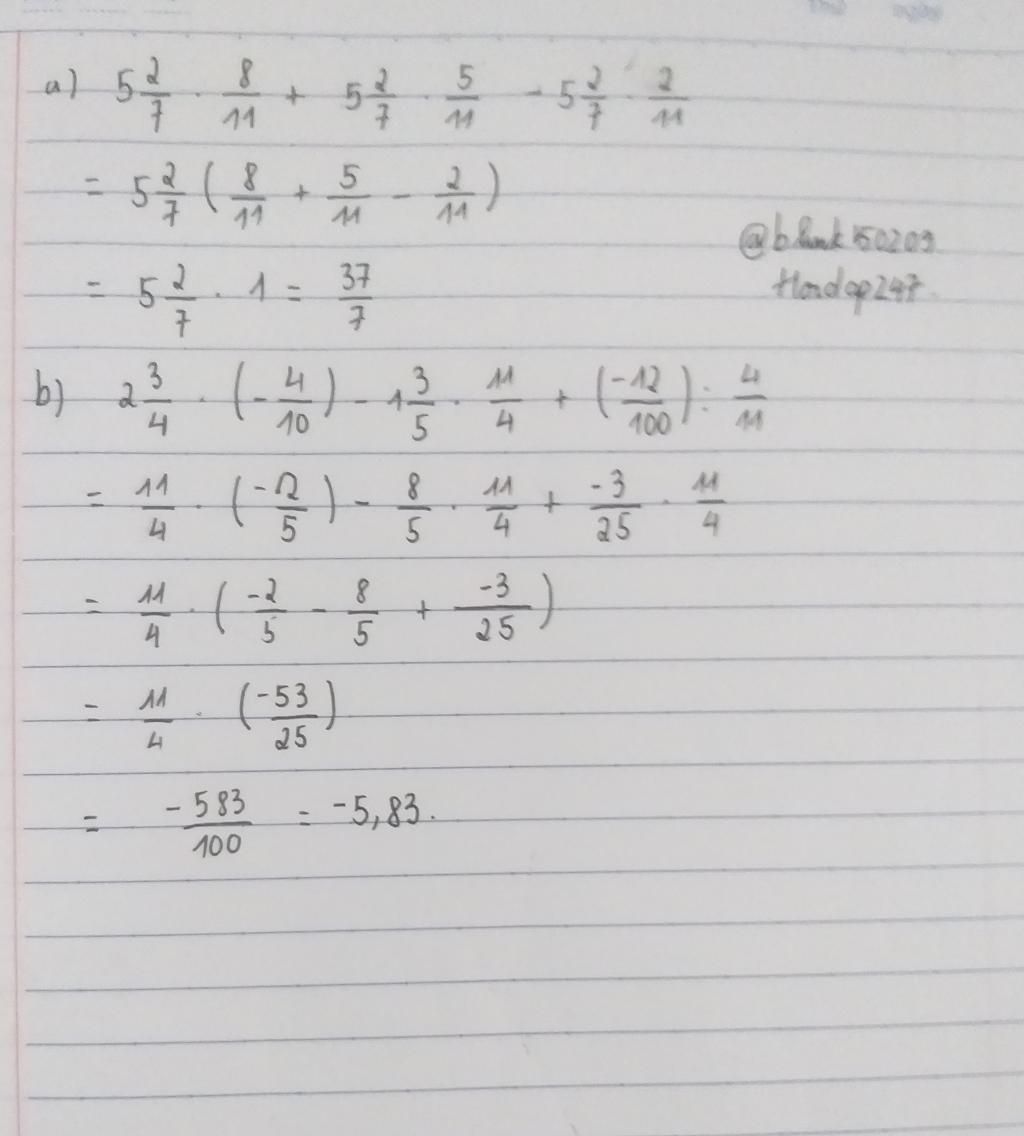 a) 5 2/7 . 8/11 + 5 2/7 . 5/11 - 5 2/7 . 2/11
= 5 2/7 ( 8/11 + 5/11 - 2/11 )
= 5 2/7 . 1 = 37/7
b) 2 3/4 . (- 4/10) - 1 3/5 . 11/4 + (-12/100) : 4/11
= 11/4 . (-2/5) - 8/5 . 11/4 + -3/25 . 11/4
= 11/4 . ( -2/5 - 8/5 + -3/25 )
= 11/4 . (-53/25)
= -583/100 = -5,83.